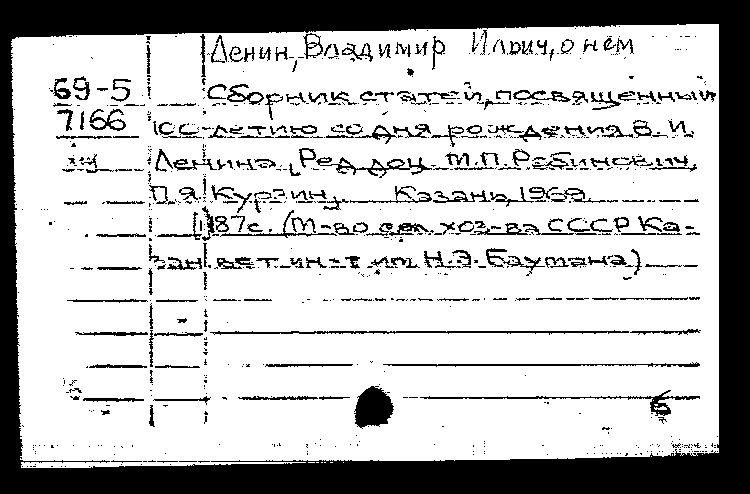 Ленин, Владимир Ильич, о нем
69-5 Сборник статей, посвященный
7166 100-летию со дня рождения В. И.
Ленина. [Ред. доц. М.П. Рабинович,
П.Я. Курзин]. Казань, 1969.
187 с. (М-во сел. хоз-ва СССР Ка-
зан. вет. ин-т им. Н.Э. Баумана)
Б